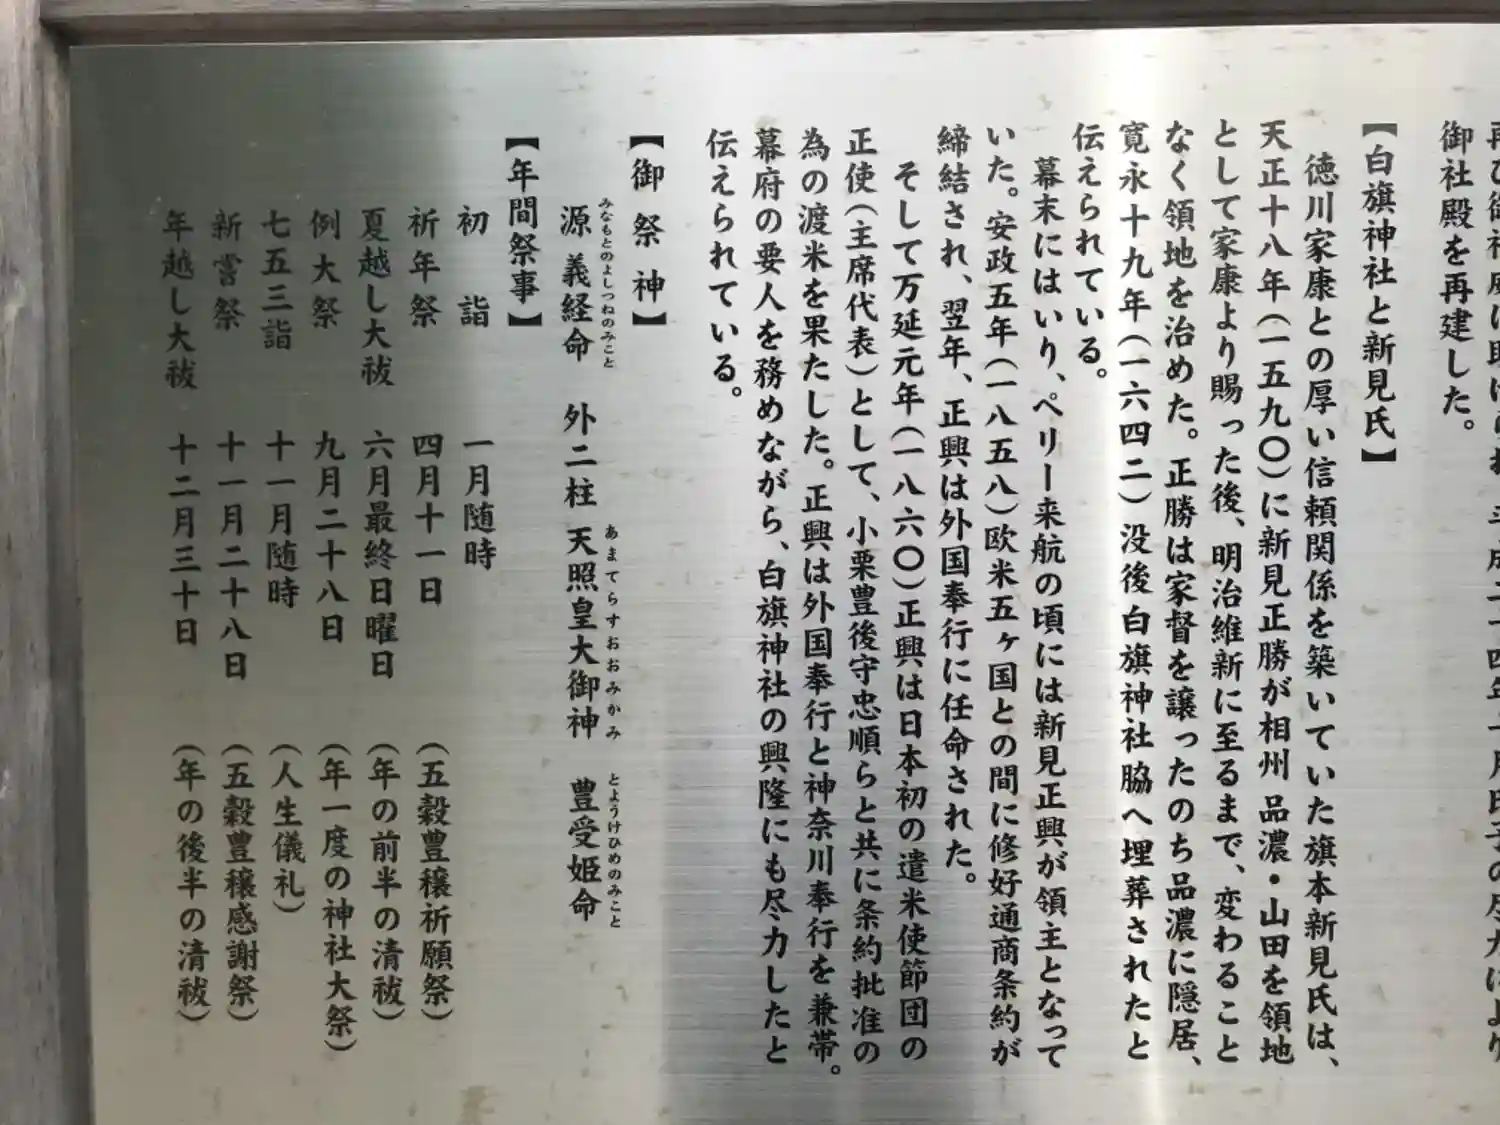 御社殿を再建した。
【白旗神社と新見氏】
徳川家康との厚い信頼関係を築いていた旗本新見氏は、
天正十八年(一五九〇)に新見正勝が相州 品濃・山田を領地
として家康より賜った後、明治維新に至るまで、変わること
なく領地を治めた。正勝は家督を譲ったのち品濃に隠居、
寛永十九年(一六四二)没後白旗神社脇へ埋葬されたと
伝えられている。
幕末にはいり、ペリー来航の頃には新見正興が領主となって
いた。安政五年(一八五八)欧米五ヶ国との間に修好通商条約が
締結され、翌年、正興は外国奉行に任命された。
そして万延元年(一八六〇)正興は日本初の遣米使節団の
正使(主席代表)として、小栗豊後守忠順らと共に条約批准の
為の渡米を果たした。正興は外国奉行と神奈川奉行を兼帯。
幕府の要人を務めながら、白旗神社の興隆にも尽力したと
伝えられている。
【御祭神】
源義経命 外二柱 天照皇大御神 豊受姫命
みなもとのよしつねのみこと あまてらすおおみかみ とようけひめのみこと
【年間祭事】
初詣 一月随時
祈年祭 四月十一日 (五穀豊穣祈願祭)
夏越し大祓 六月最終日曜日 (年の前半の清祓)
例大祭 九月二十八日 (年一度の神社大祭)
七五三詣 十一月随時 (人生儀礼)
新嘗祭 十一月二十八日 (五穀豊穣感謝祭)
年越し大祓 十二月三十日 (年の後半の清祓)